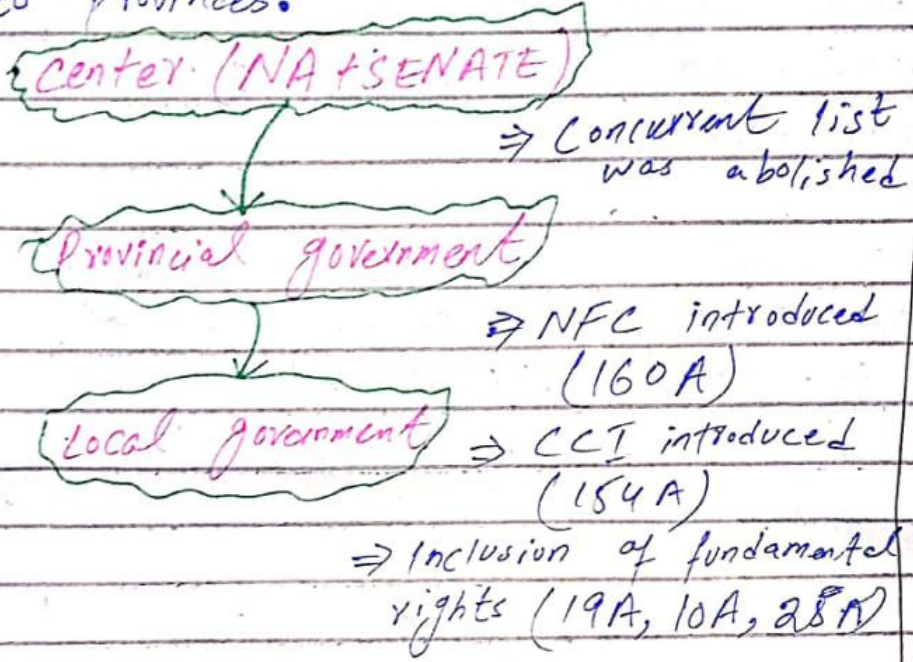 to provinces.
Center (NA + SENATE)
⇒ Concurrent list
was abolished
Provincial government
⇒ NFC introduced
(160A)
Local government
⇒ CCI introduced
(154A)
⇒ Inclusion of fundamental
rights (19A, 10A, 25A)